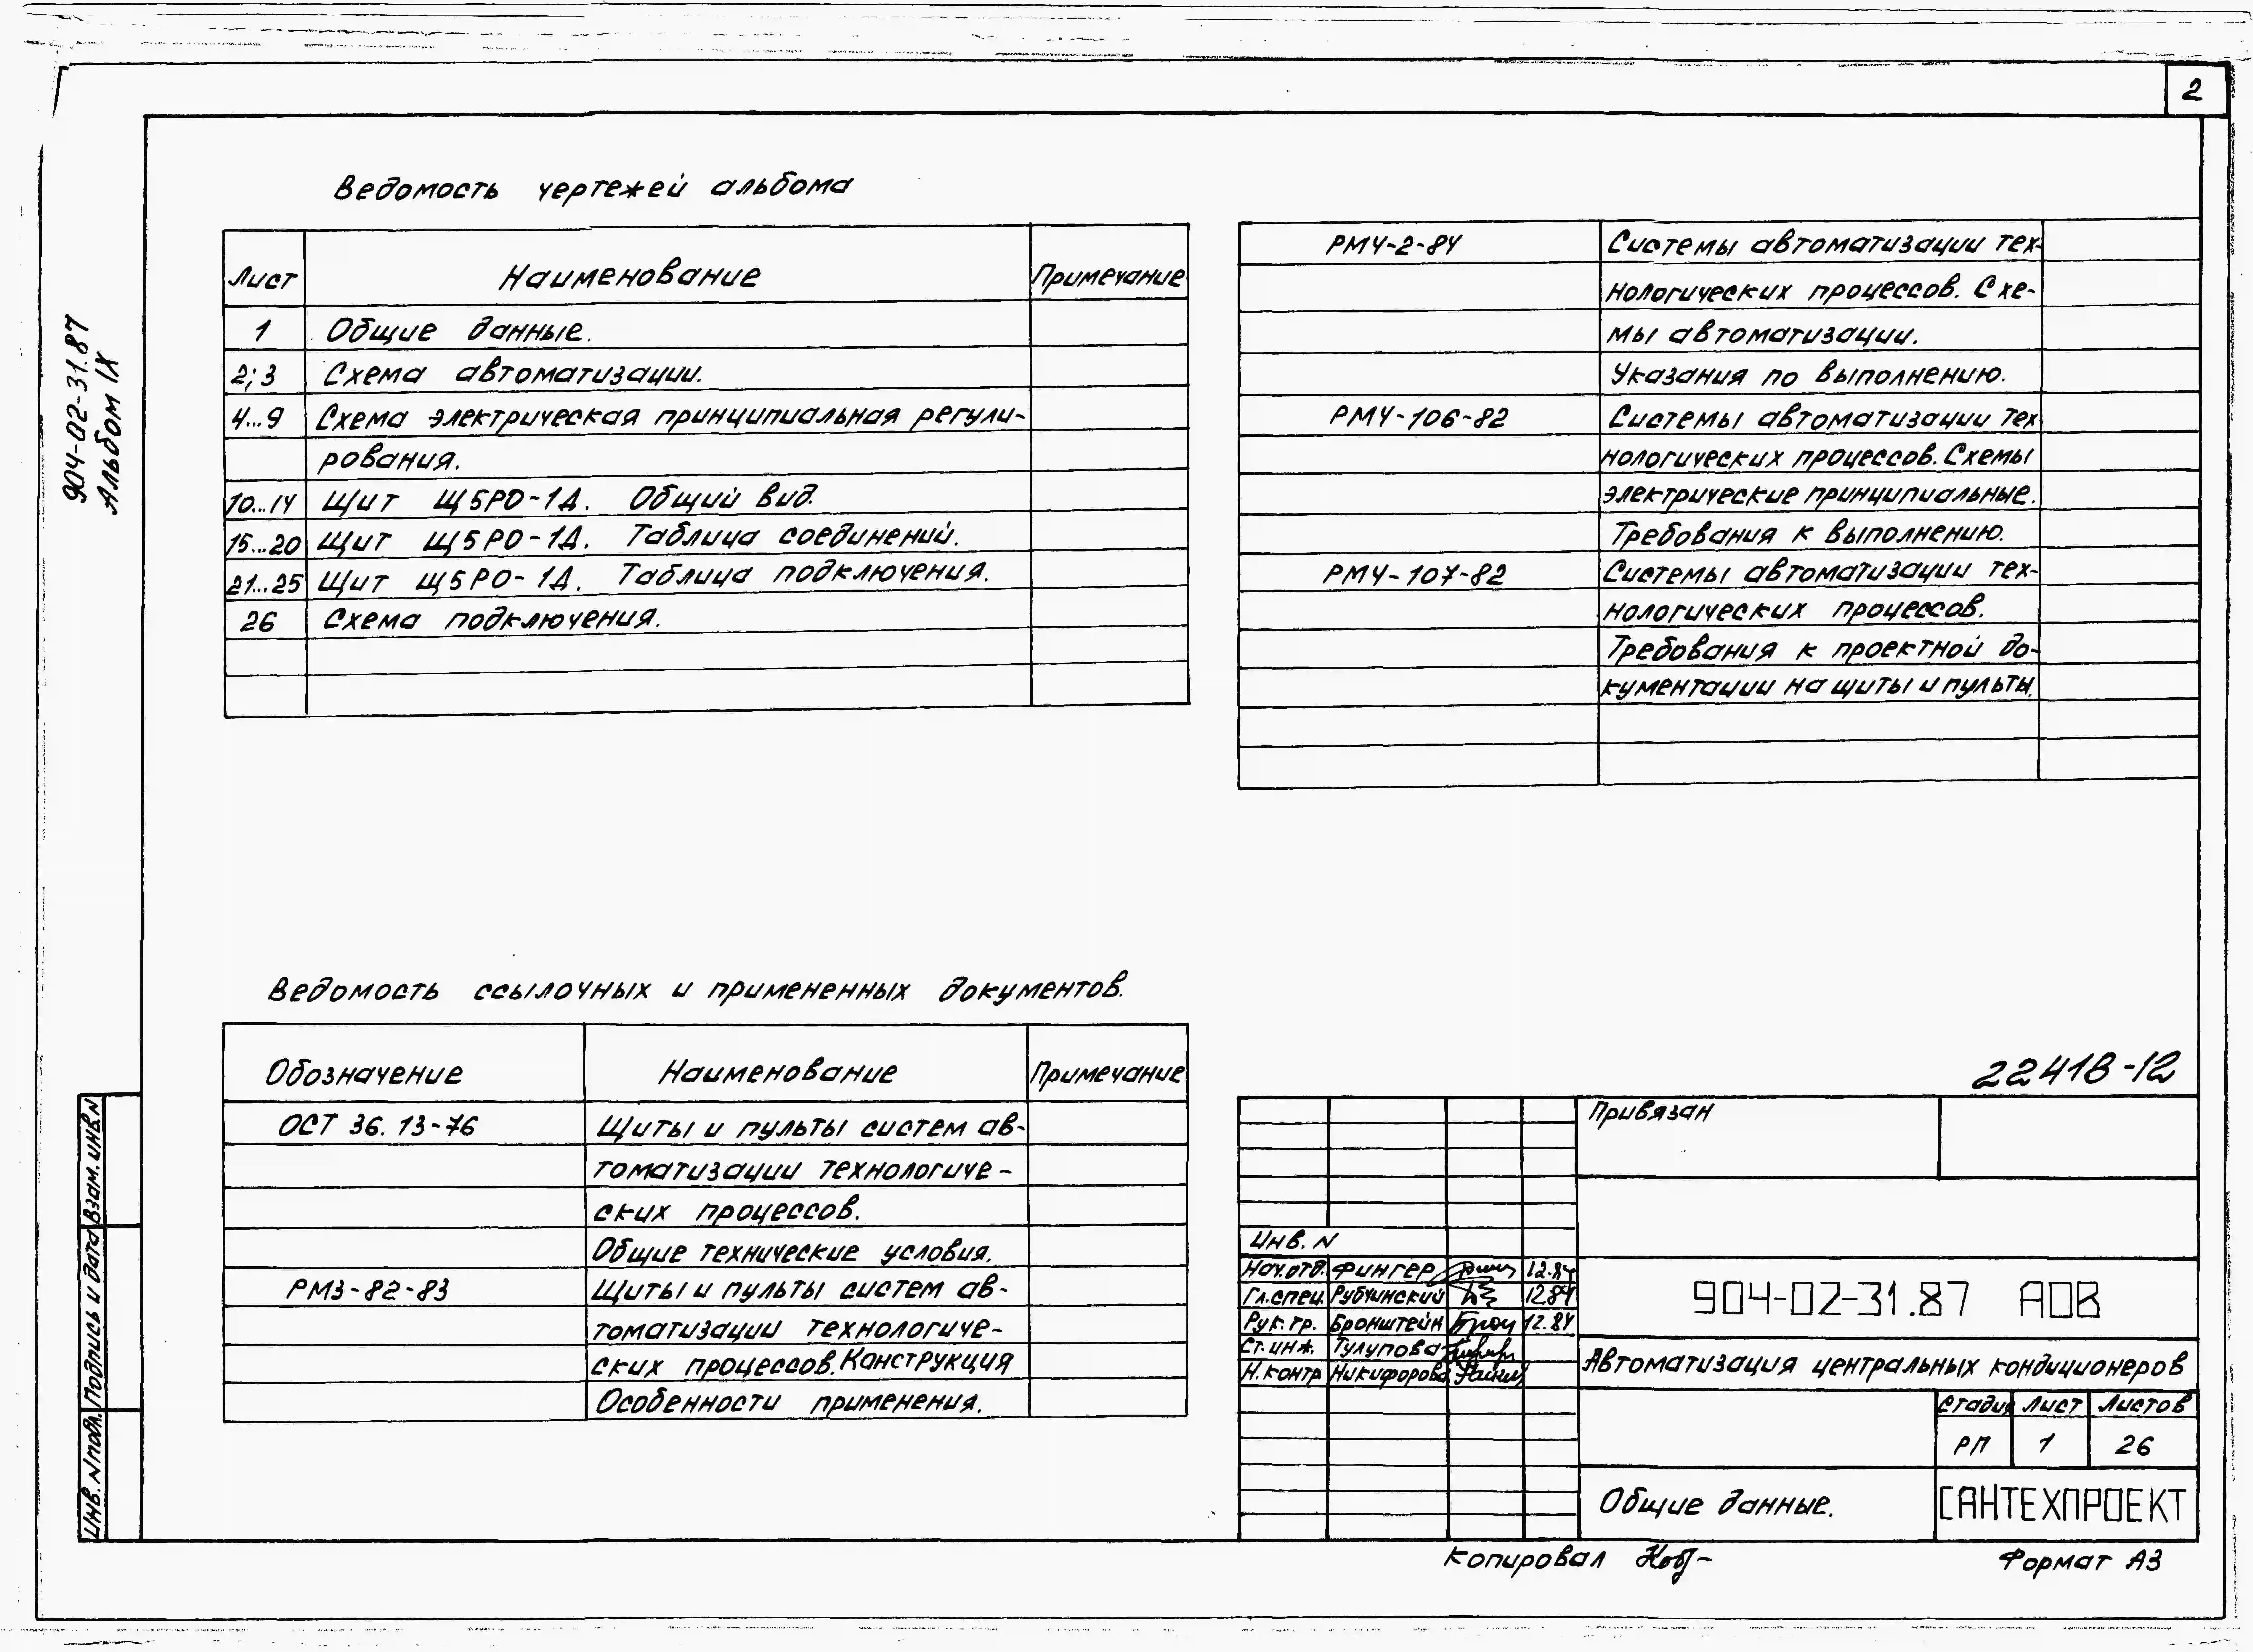 2
904-02-31.87
Альбом IX
Ведомость чертежей альбома
Лист Наименование Примечание
1 Общие данные.
2; 3 Схема автоматизации.
4...9 Схема электрическая принципиальная регули-
рования.
10...14 Щит Щ5РО-1Д. Общий вид.
15...20 Щит Щ5РО-1Д. Таблица соединений.
21...25 Щит Щ5РО-1Д. Таблица подключения.
26 Схема подключения.
Ведомость ссылочных и примененных документов.
Обозначение Наименование Примечание
ОСТ 36.13-76 Щиты и пульты систем ав-
томатизации технологиче-
ских процессов.
Общие технические условия.
РМ3-82-83 Щиты и пульты систем ав-
томатизации технологиче-
ских процессов. Конструкция
Особенности применения.
РМ4-2-84 Системы автоматизации тех-
нологических процессов. Схе-
мы автоматизации.
Указания по выполнению.
РМ4-106-82 Системы автоматизации тех-
нологических процессов. Схемы
электрические принципиальные.
Требования к выполнению.
РМ4-107-82 Системы автоматизации тех-
нологических процессов.
Требования к проектной до-
кументации на щиты и пульты.
22418-12
Привязан
Инв. N
Нач.отд. Фингер 12.84
Гл.спец. Рубчинский 12.84
Рук.гр. Бронштейн 12.84
Ст.инж. Тулупова
Н.контр Никифорова
904-02-31.87 АОВ
Автоматизация центральных кондиционеров
Стадия Лист Листов
РП 1 26
Общие данные.
САНТЕХПРОЕКТ
Копировал
Формат А3
Взам. инв. N
Подпись и дата
Инв. N подл.